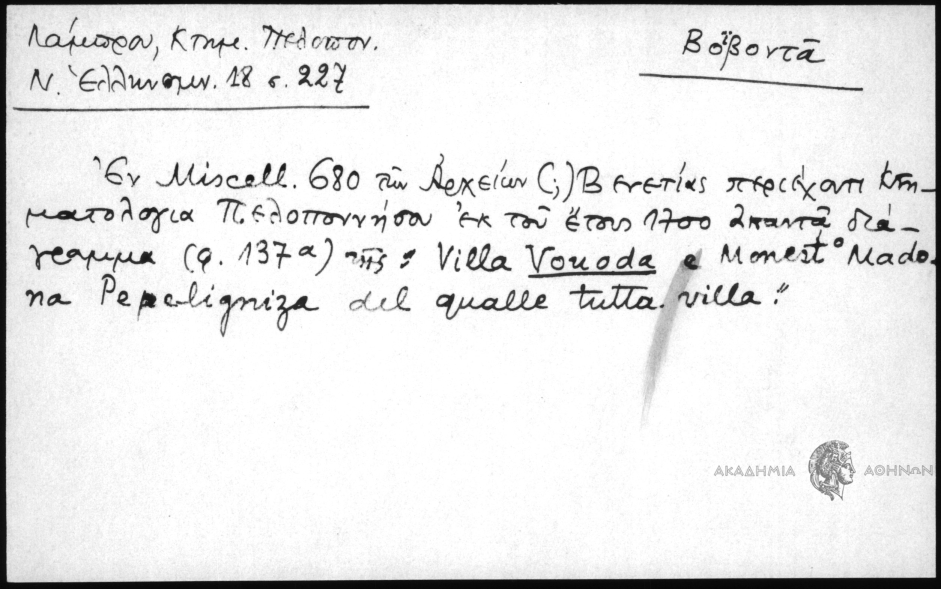 Λάμπρου, Κτημ. Πελοπον.
Ν. Ἑλληνομν. 18 σ. 227
Βοϊβοντᾶ
Ἐν Miscell. 680 τῶν Ἀρχείων (;) Βενετίας περιέχοντι κτη-
ματολόγια Πελοποννήσου ἐκ τοῦ ἔτους 1700 ἀπαντᾶ διά-
γραμμα (φ. 137α) τῆς : Villa Vouoda e Monestᵗᵒ Mado.
na Pepeligniza del qualle tutta villa."
ΑΚΑΔΗΜΙΑ ΑΘΗΝΩΝ